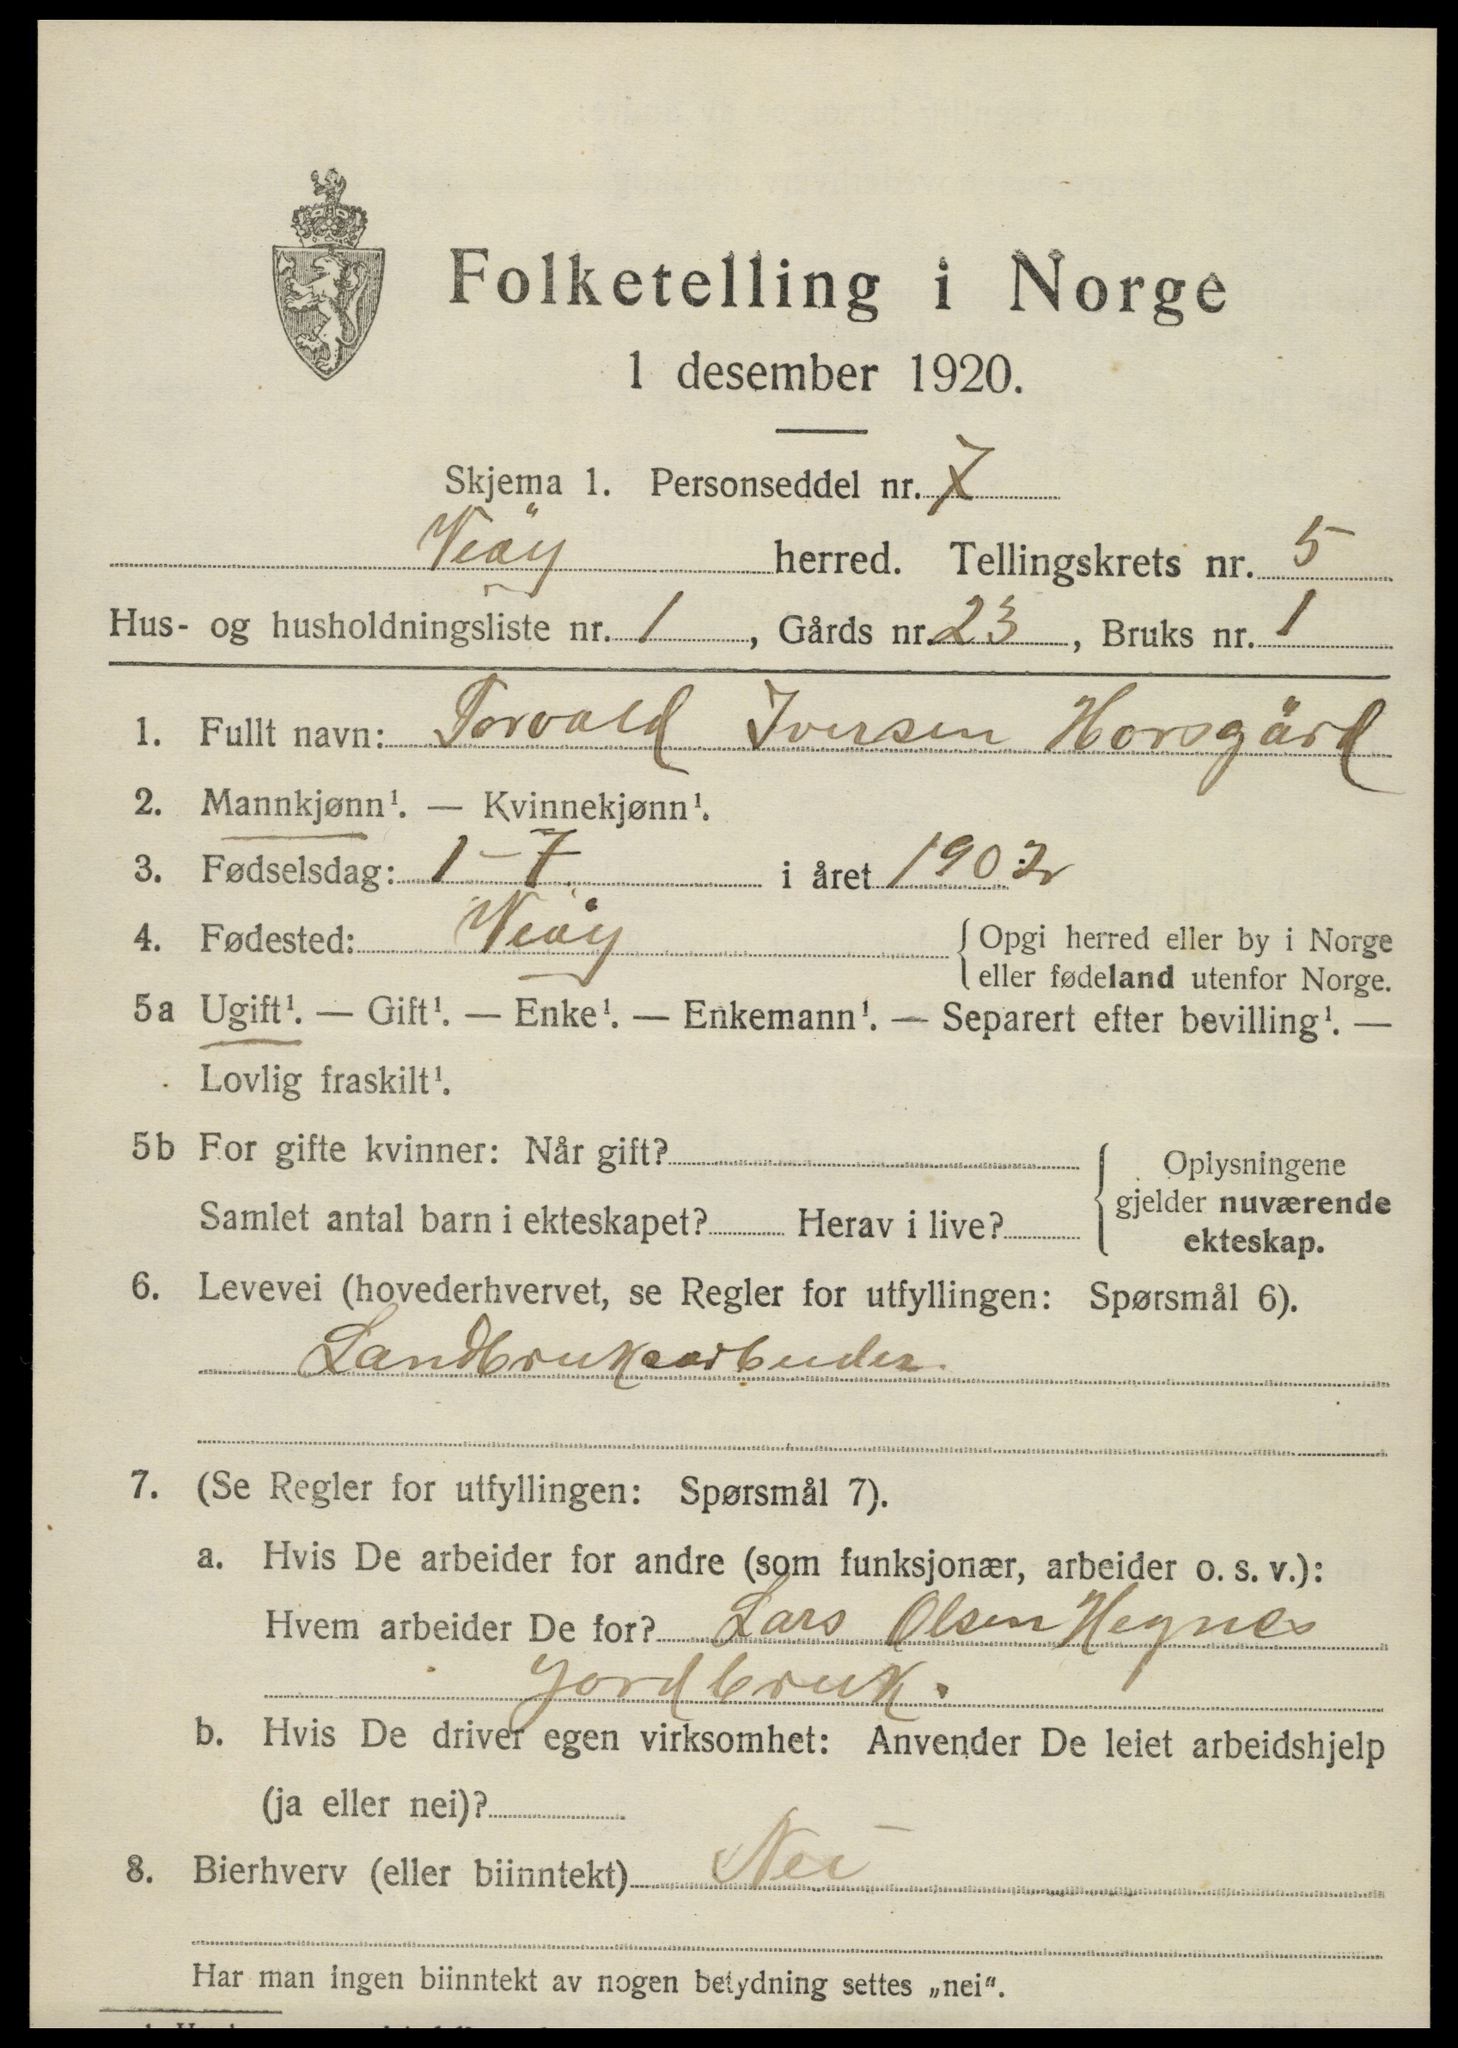 Folketelling i Norge
1 desember 1920.
Skjema 1. Personseddel nr. 7
Veöy herred. Tellingskrets nr. 5
Hus- og husholdningsliste nr. 1, Gårds nr. 23, Bruks nr. 1
1. Fullt navn: Torvald Iversen Horsgård
2. Mannkjønn¹. — Kvinnekjønn¹.
3. Fødselsdag: 1-7 i året 1902
4. Fødested: Veöy {Opgi herred eller by i Norge
eller fødeland utenfor Norge.
5a Ugift¹. — Gift¹. — Enke¹. — Enkemann¹. — Separert efter bevilling¹. —
Lovlig fraskilt¹.
5b For gifte kvinner: Når gift? { Oplysningene
gjelder nuværende
Samlet antal barn i ekteskapet? Herav i live?
ekteskap.
6. Levevei (hovederhvervet, se Regler for utfyllingen: Spørsmål 6).
Landbruksarbeider.
7. (Se Regler for utfyllingen: Spørsmål 7).
a. Hvis De arbeider for andre (som funksjonær, arbeider o. s. v.):
Hvem arbeider De for? Lars Olsen Hegnes
Jordbruk.
b. Hvis De driver egen virksomhet: Anvender De leiet arbeidshjelp
(ja eller nei)?
8. Bierhverv (eller biinntekt) Nei
Har man ingen biinntekt av nogen betydning settes „nei“.